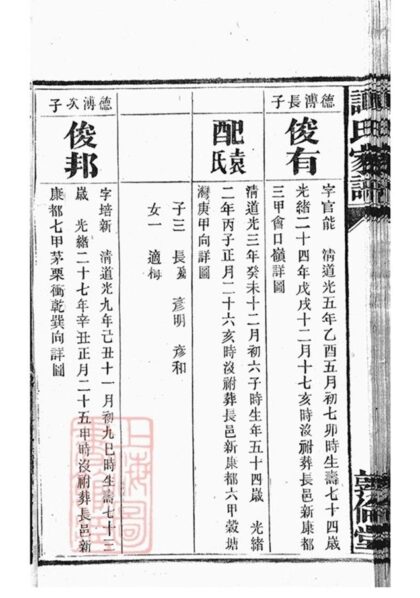 譚氏家譜
敦倫堂
德溥長子
俊有
字官能 清道光五年乙酉五月初七卯時生壽七十四歲
光緒二十四年戊戌十二月十七亥時沒祔葬長邑新康都
三甲會口嶺詳圖
配袁氏
清道光三年癸未十二月初六子時生年五十四歲 光緒
二年丙子正月二十六亥時沒祔葬長邑新康都六甲穀塘
灣庚甲向詳圖
子三 長 彥明 彥和
女一 適梅
德溥次子
俊邦
字培新 清道光九年己丑十一月初九巳時生壽七十三
歲 光緒二十七年辛丑正月二十五甲時沒祔葬長邑新
康都七甲茅栗衝乾巽向詳圖
上海圖